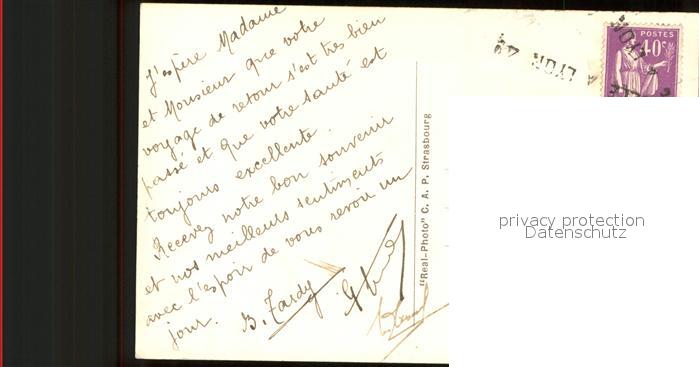 J'espère Madame
et Monsieur que votre
voyage de retour s'est très bien
passé et que votre santé est
toujours excellente.
Recevez notre bon souvenir
et nos meilleurs sentiments
avec l'espoir de vous revoir un
jour. B. Tardy
"Real-Photo" C. A. P. Strasbourg
POSTES
40c
A LYON
privacy protection
Datenschutz